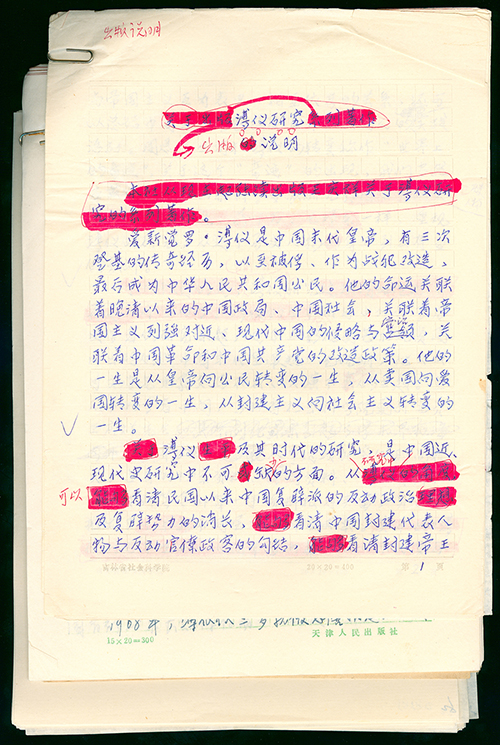 出版说明
溥仪研究
出版说明
爱新觉罗·溥仪是中国末代皇帝，有三次
登基的传奇经历，以至被俘、作为战犯改造，
最后成为中华人民共和国公民。他的命运关联
着晚清以来的中国政局、中国社会，关联着帝
国主义列强对近、现代中国的侵略与掠夺，关
联着中国革命和中国共产党的改造政策。他的
一生是从皇帝向公民转变的一生，从卖国向爱
国转变的一生，从封建主义向社会主义转变的
一生。
溥仪及其时代的研究，是中国近、
现代史研究中不可缺的方面。从
可以看清民国以来中国复辟派的反动政治
及复辟势力的消长，看清中国封建代表人
物与反动官僚政客的勾结，看清封建帝王
吉林省社会科学院 20×20=400 第 1 页
1908年，溥仪以三岁
15×20=300 天津人民出版社